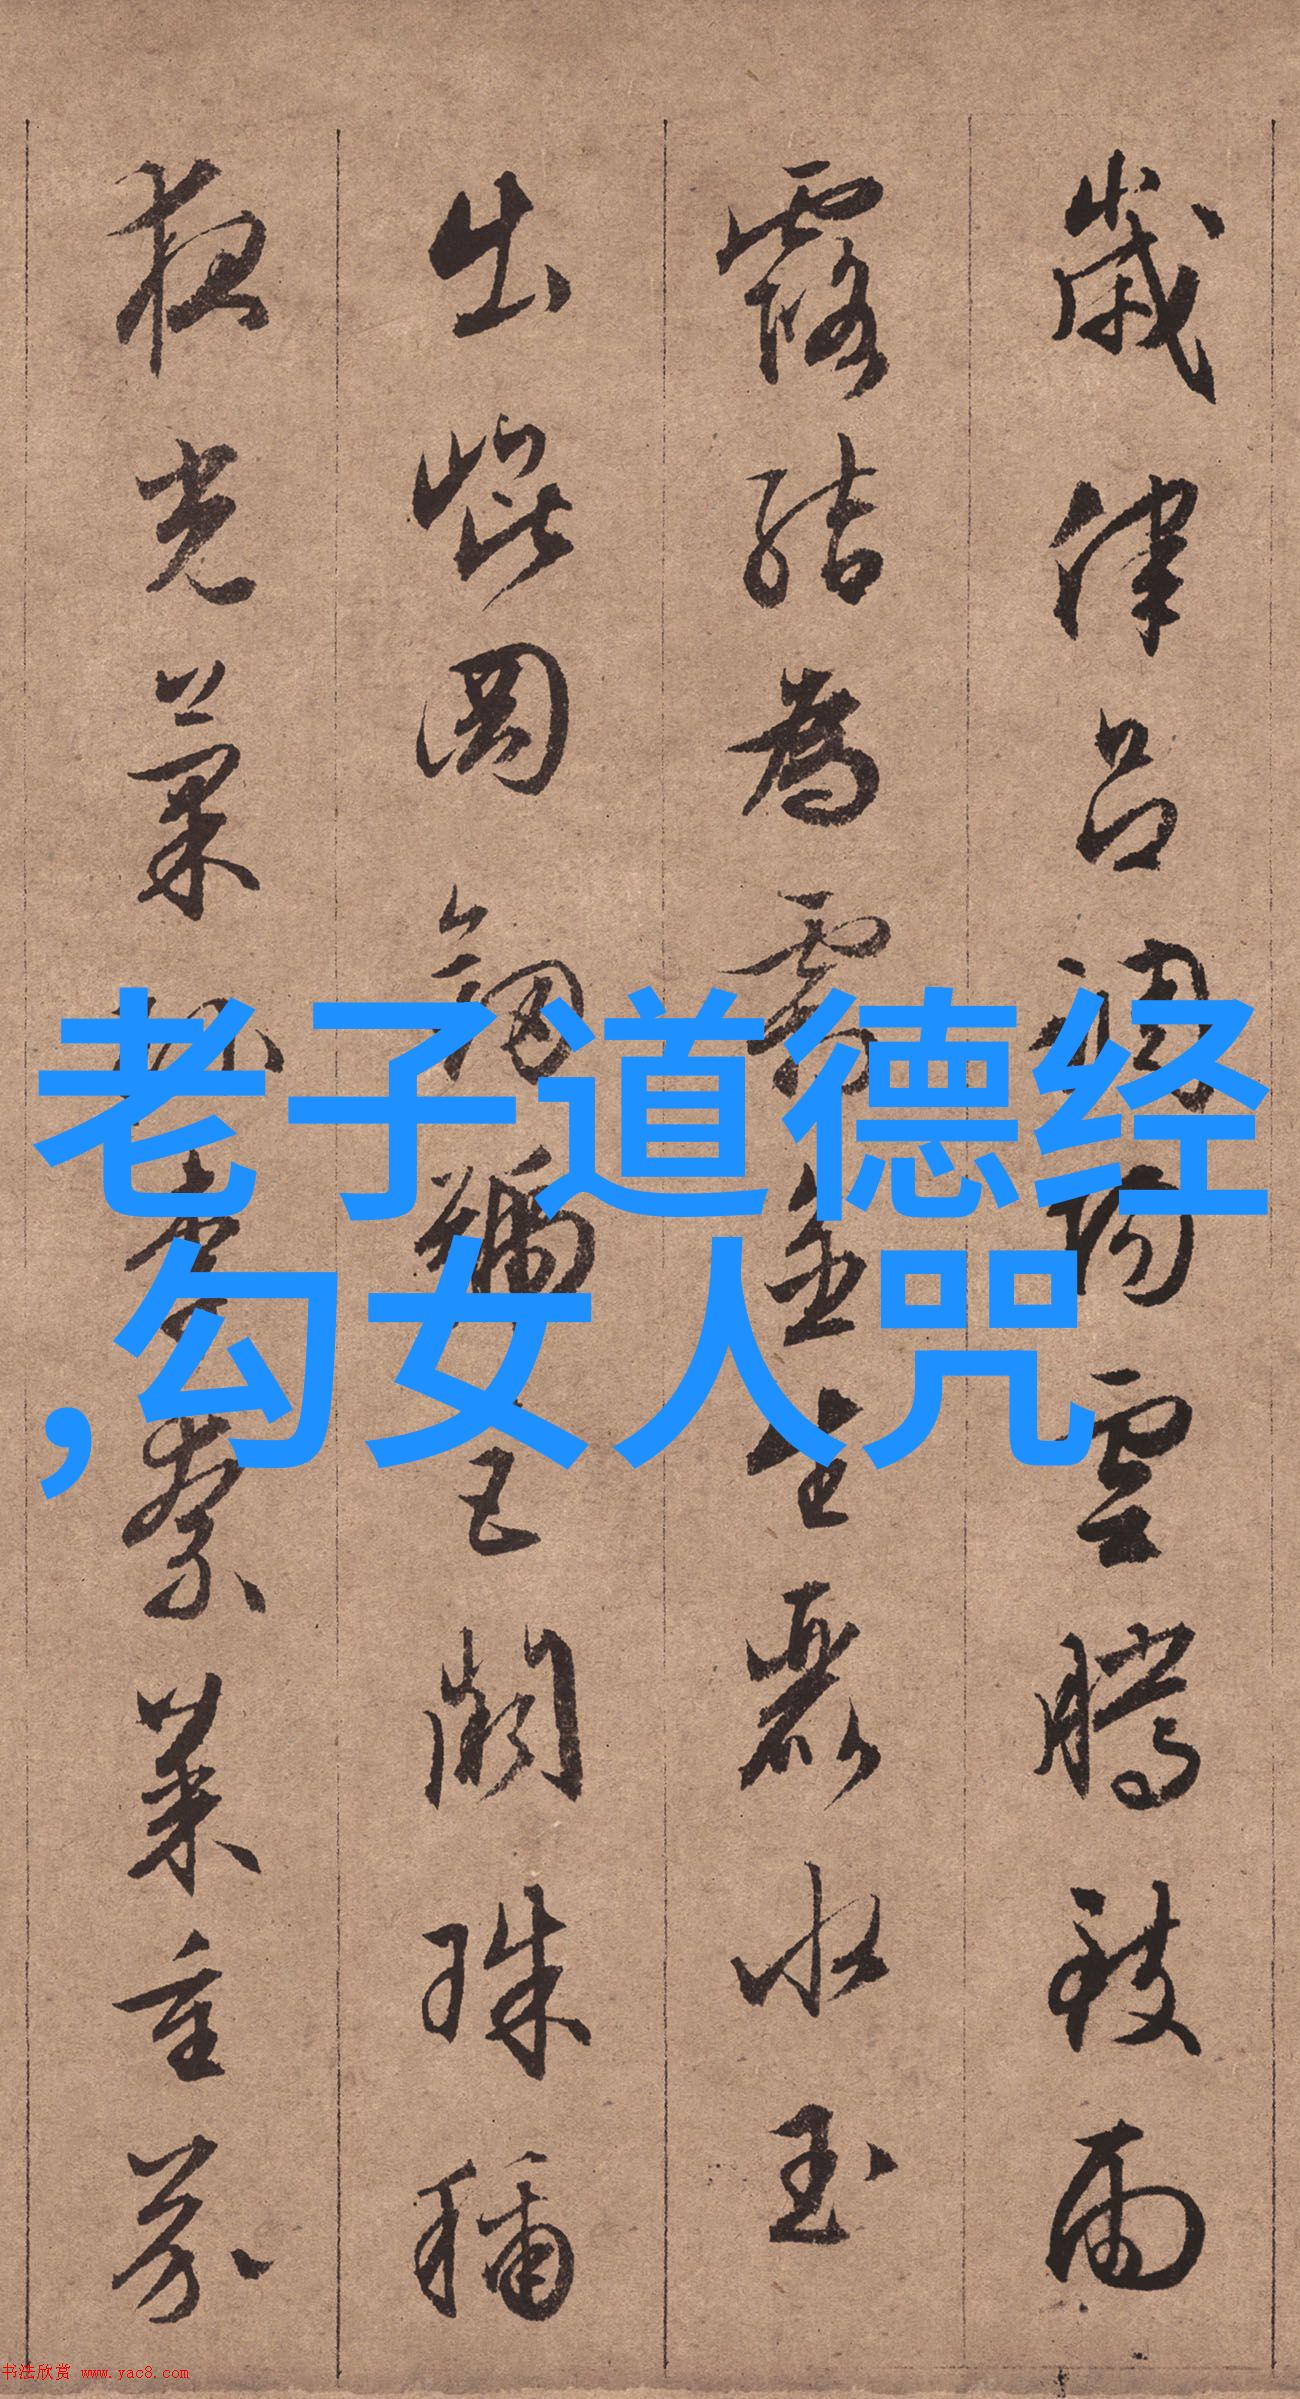 歲律呂調陽雲騰致雨
露結為霜金生麗水玉
出崐岡劍號巨闕珠稱
夜光菓珍李柰菜重芥
老子道德经
,勾女人咒
书法欣赏 www.yac8.com